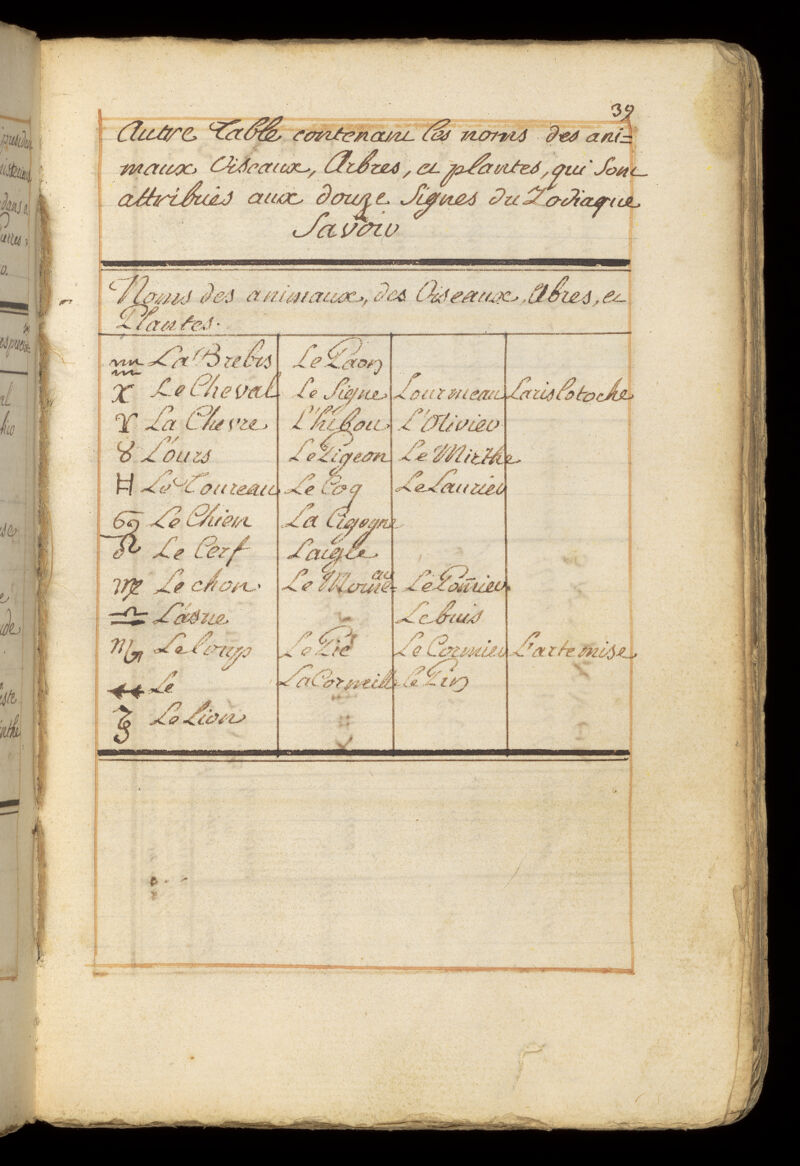 39
Autre Table contenant les noms des ani=
maux Oiseaux, Arbres, et plantes, qui Sont
attribués aux douze Signes du Zodiaque
Savoir
Noms des animaux, des Oiseaux, Abres, et
Plantes.
♒ La Brebis Le Paon
♓ Le Cheval Le Signe Lourmeau Larislotoche
♈ La Chevre L'hibou L'Olivier
♉ L'ours Le Pigeon Le Mirthe
♊ Le Toureau Le Coq Le Laurier
♋ Le Chien La Cigogne
♌ Le Cerf Laigle
♍ Le chon Le Moineau Le Pom̃ier
♎ L'asne Le buis
♏ Le loup Le Pié Le Cormier L'artemise
♐ Le La Corneille le Pin
♑ Le Lion